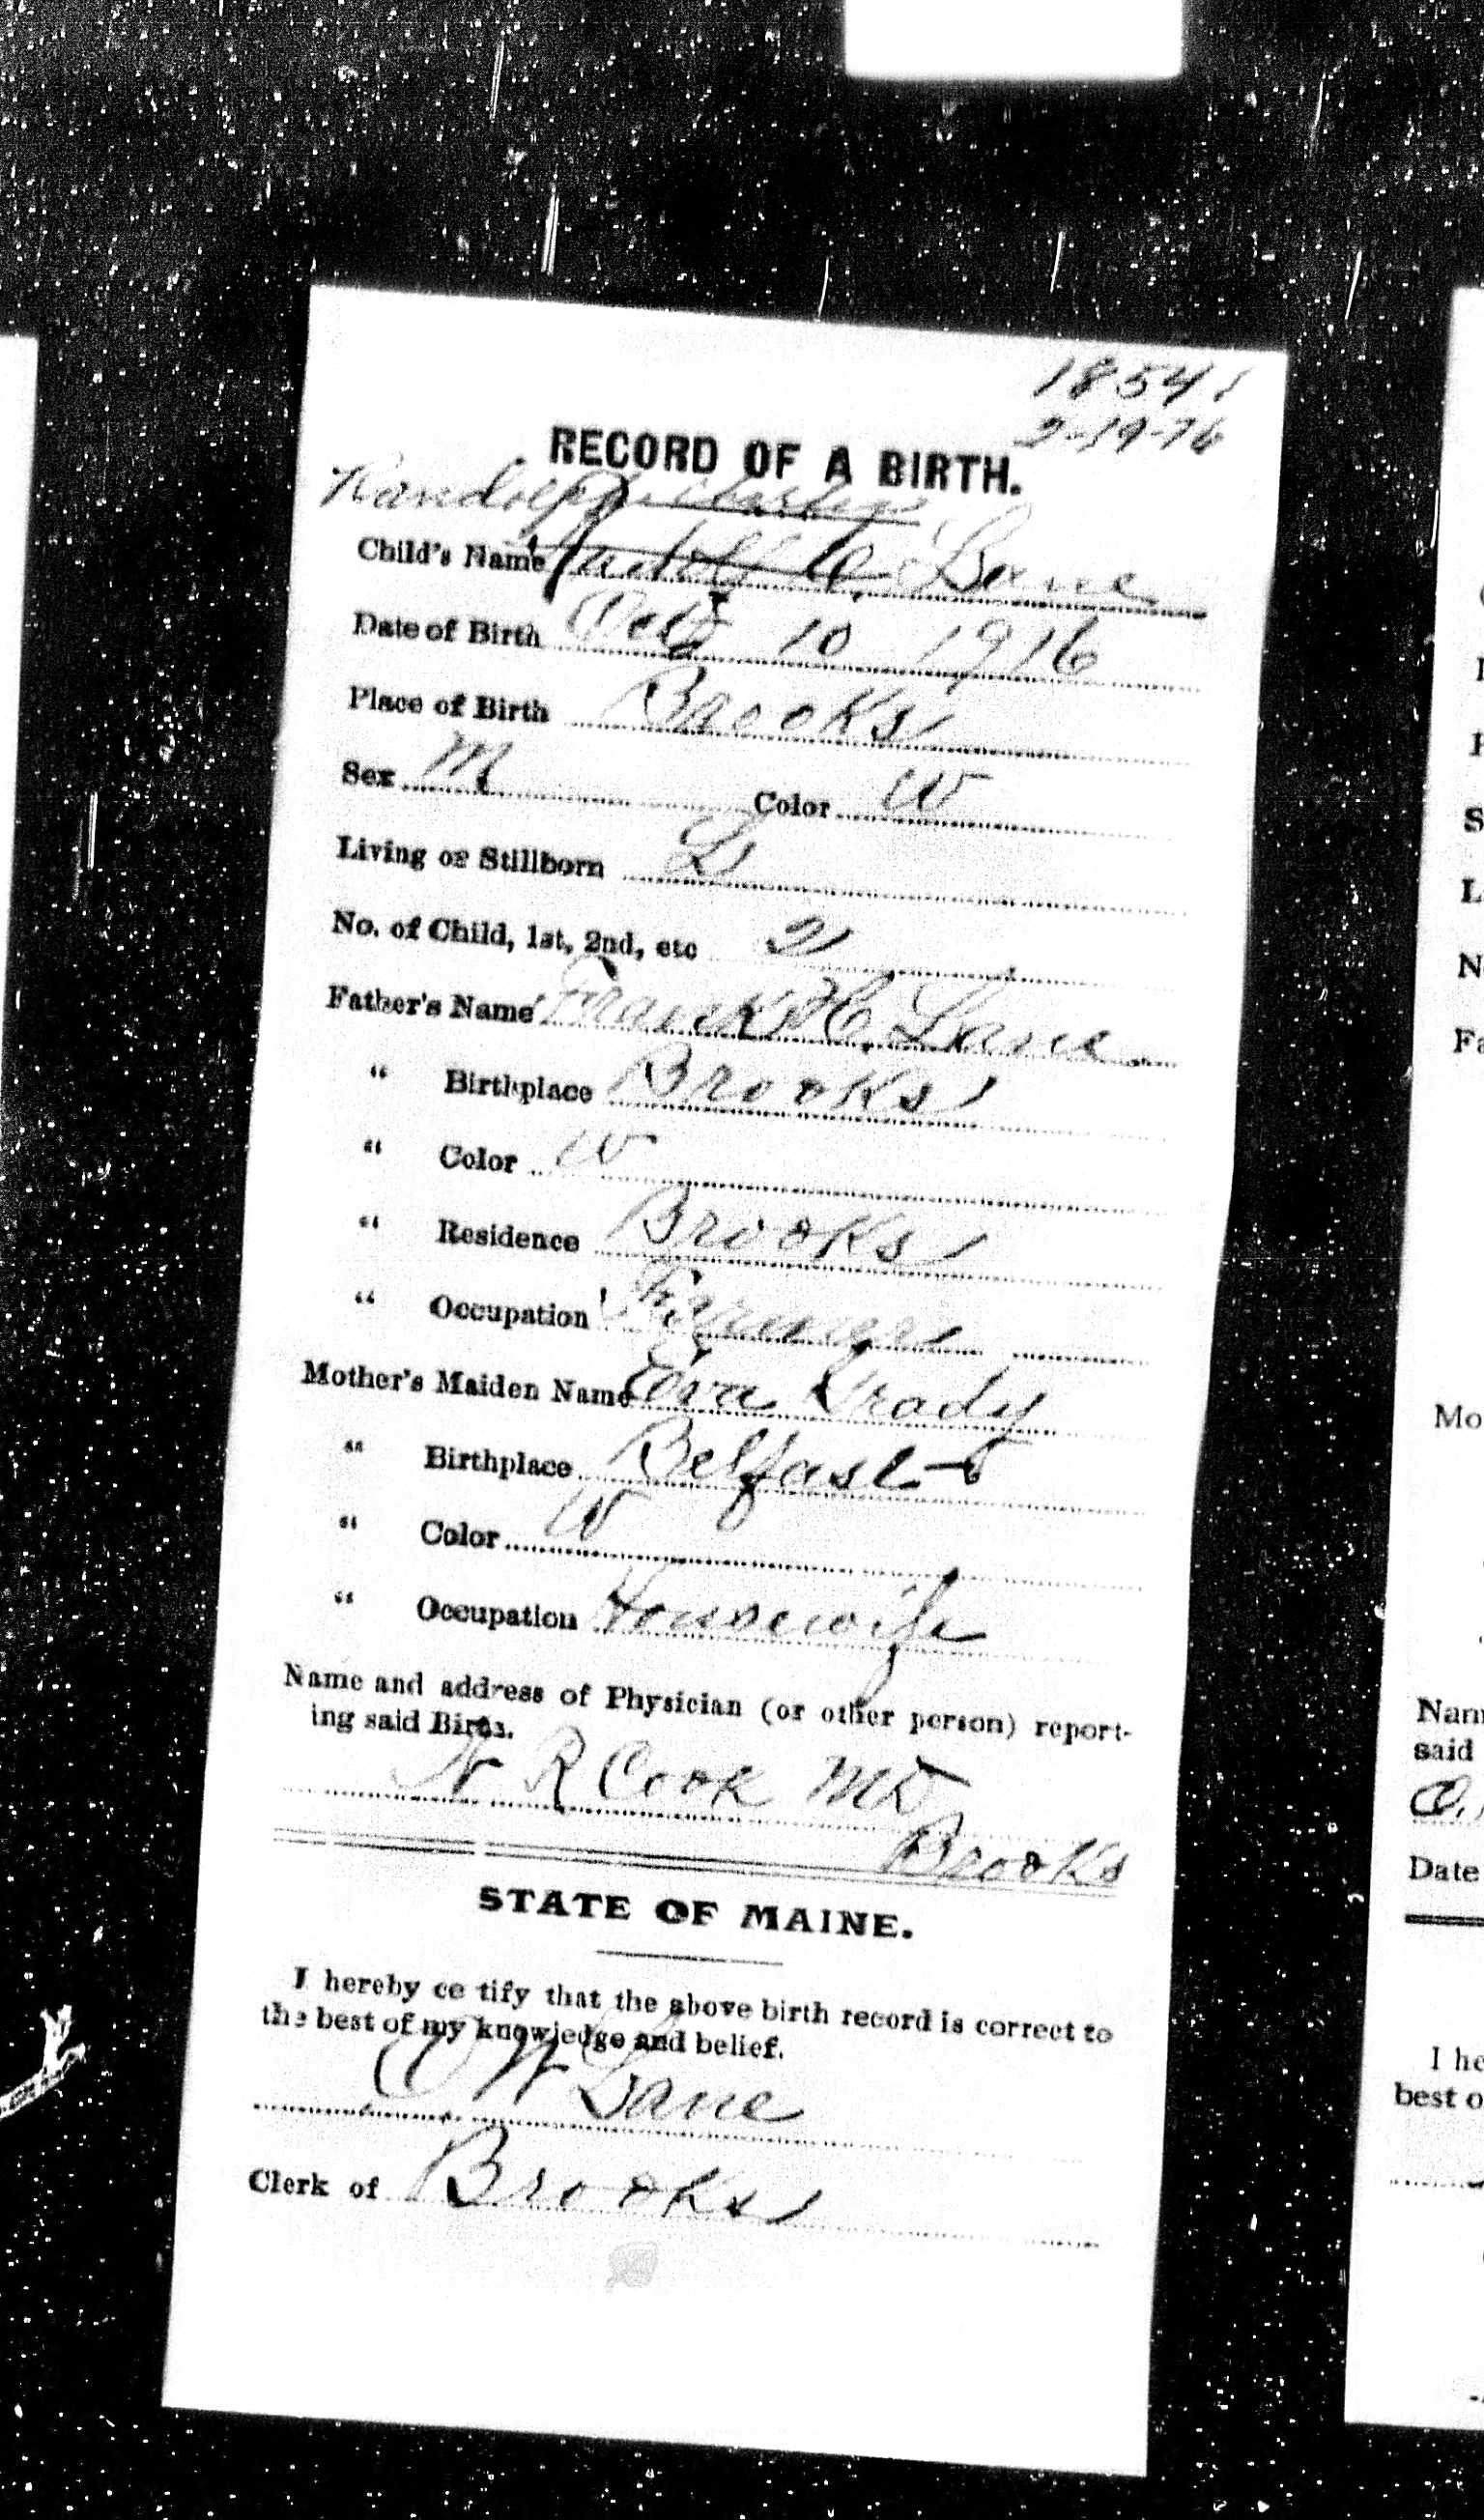 18541
2-19-76
RECORD OF A BIRTH.
Randolph Charles
Child's Name Rudolf C. Lane
Date of Birth Oct 10 1916
Place of Birth Brooks
Sex M Color W
Living or Stillborn L
No. of Child, 1st, 2nd, etc 2
Father's Name Frank H. Lane
" Birthplace Brooks
" Color W
" Residence Brooks
" Occupation Farmer
Mother's Maiden Name Eva Grady
" Birthplace Belfast
" Color W
" Occupation Housewife
Name and address of Physician (or other person) report-
ing said Birth.
N R Cook MD
Brooks
STATE OF MAINE.
I hereby ce tify that the above birth record is correct to
the best of my knowledge and belief.
O W Lane
Clerk of Brooks
S
L
N
Fa
Mo
Nam
said
O.
Date
I he
best o